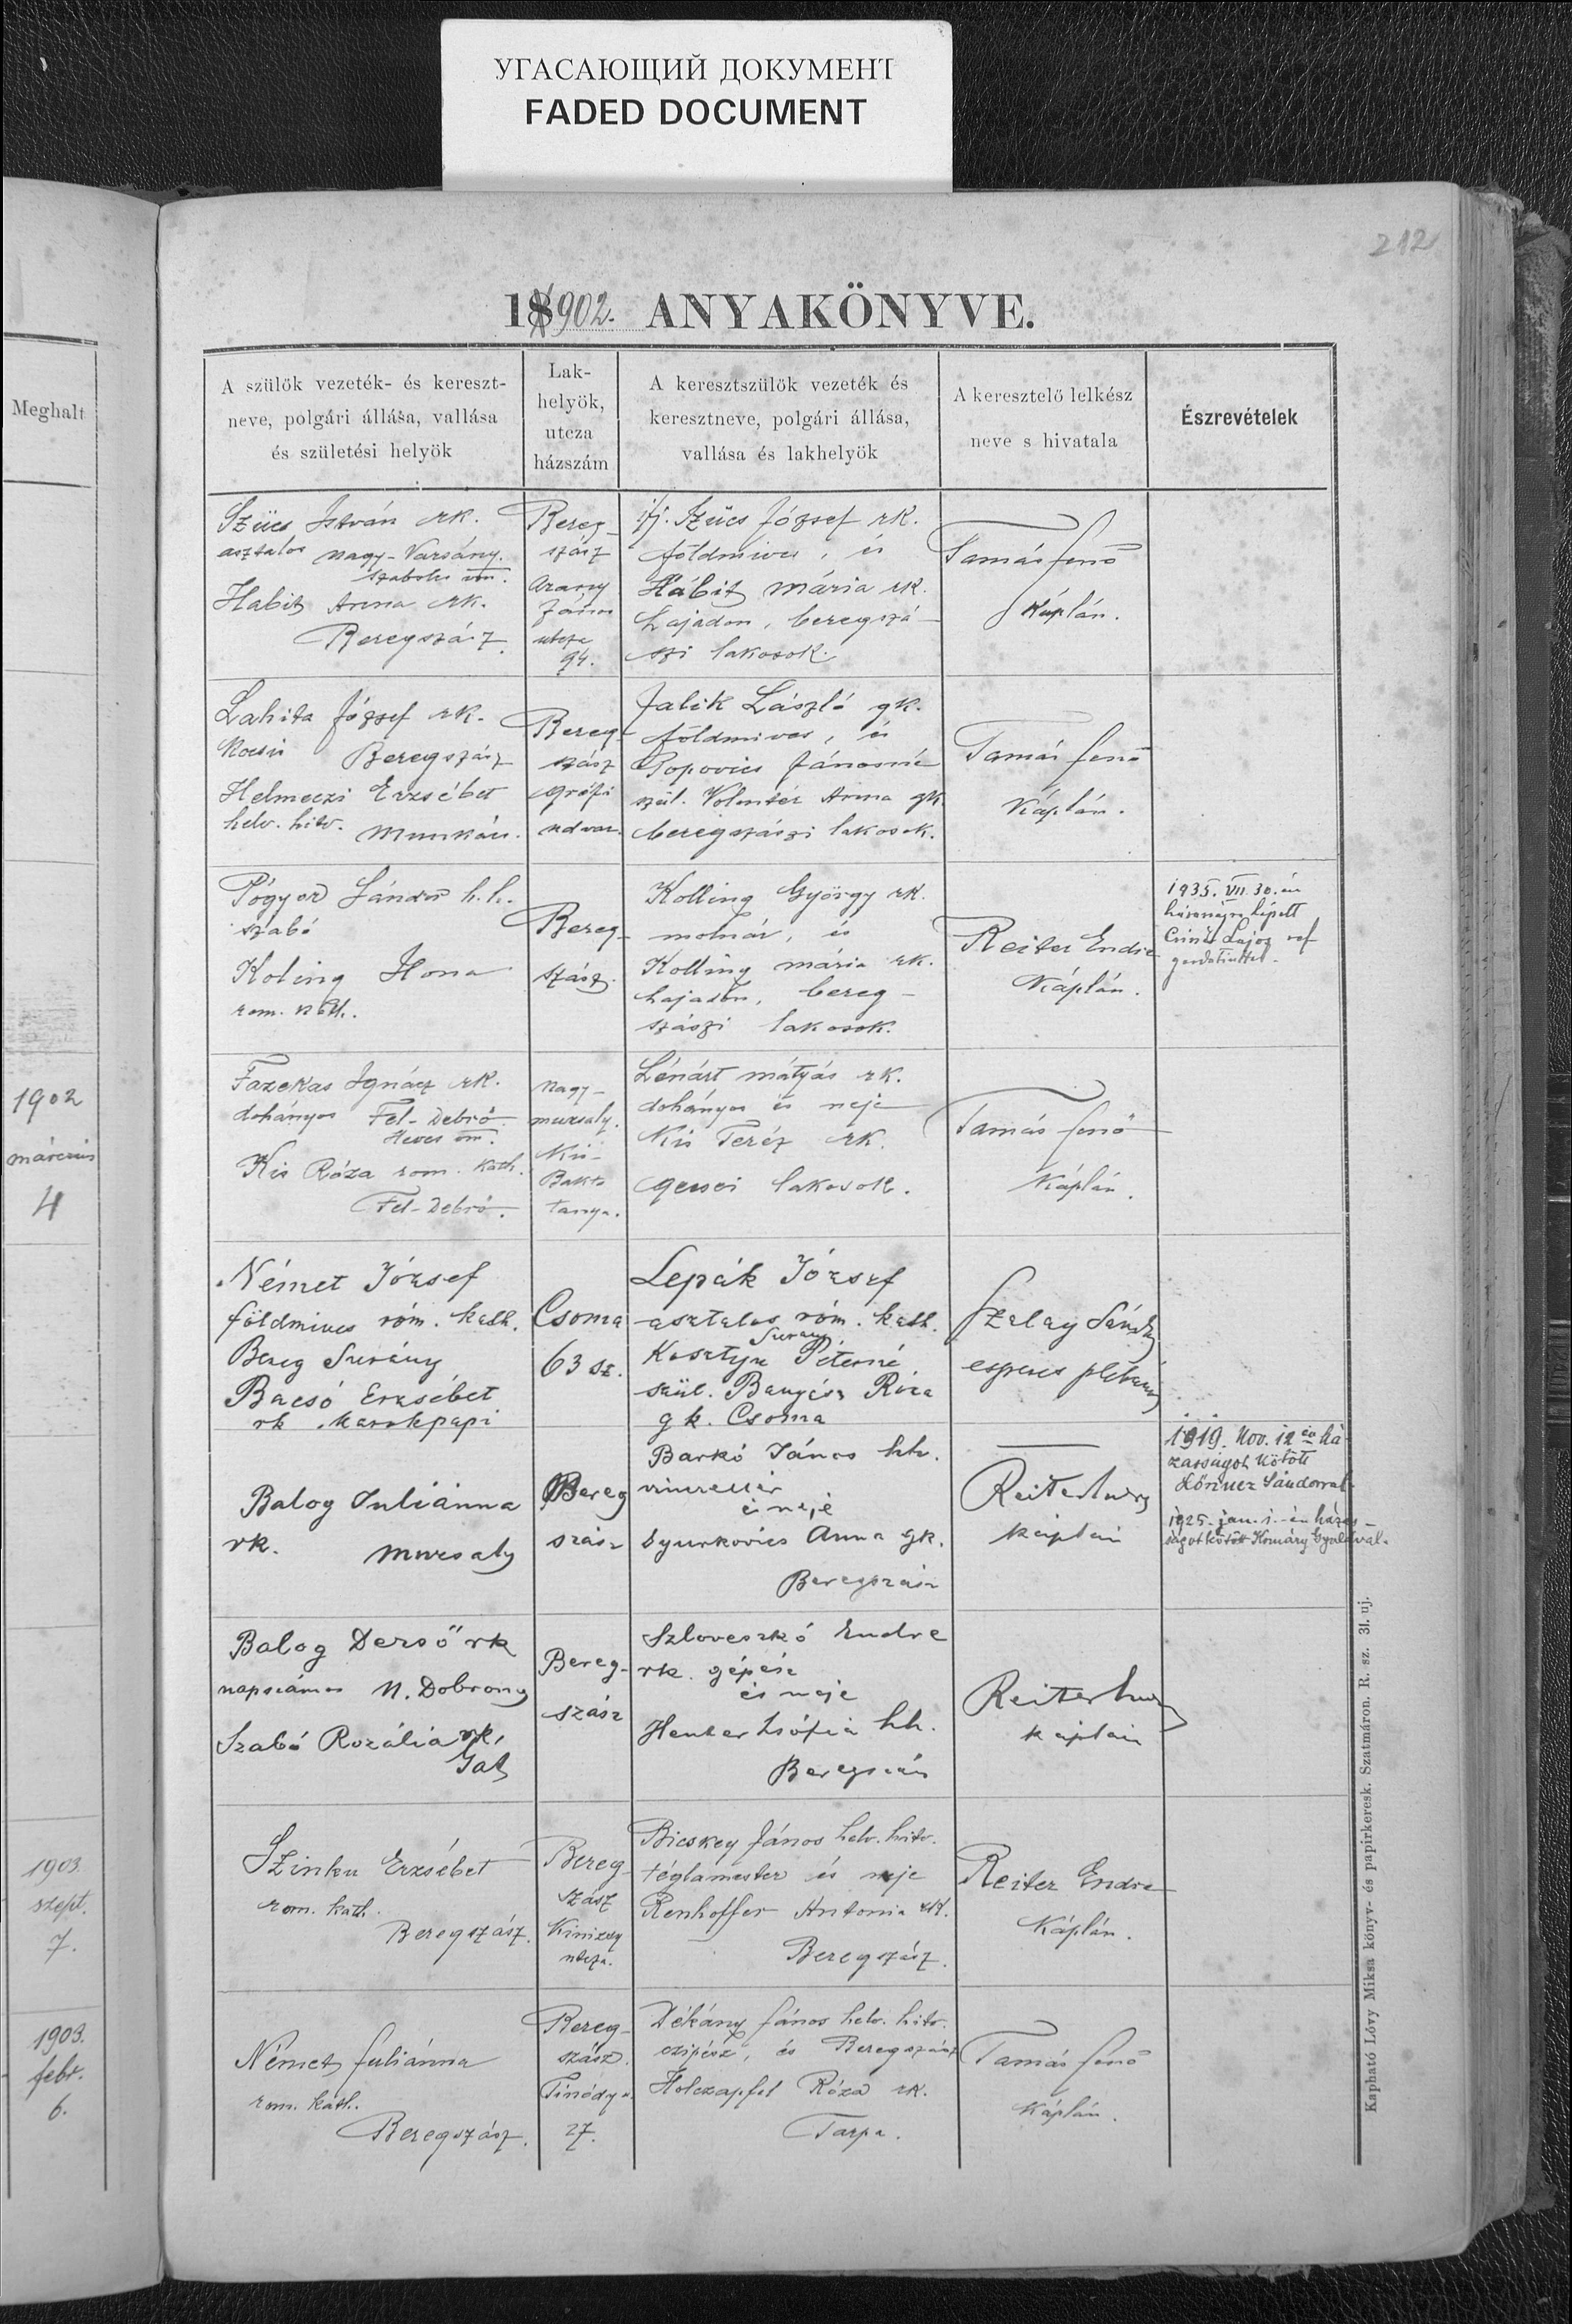 УГАСАЮЩИЙ ДОКУМЕНТ
FADED DOCUMENT
212
18902. ANYAKÖNYVE.
Meghalt
A szülök vezeték- és kereszt-
neve, polgári állása, vallása
és születési helyök
Lak-
helyök,
utcza
házszám
A keresztszülök vezeték és
keresztneve, polgári állása,
vallása és lakhelyök
A keresztelő lelkész
neve s hivatala
Észrevételek
Szücs István rk.
asztalos Nagy-Varsány.
Szabolcs vm.
Habit Anna rk.
Beregszász.
Bereg-
szász
Arany
János
utcza
94.
ifj. Szücs József rk.
földmives, és
Hábit Mária rk.
hajadon, beregszá-
szi lakosok.
Tamás Jenő
Káplán.
Lahita József rk.
Kocsis Beregszász
Helmeczi Erzsébet
helv. hitv. Munkács.
Bereg-
szász
grófi
udvar.
Jalik László gk.
földmives, és
Popovics Jánosné
szül. Volentér Anna gk.
beregszászi lakosok.
Tamás Jenő
Káplán.
Pógyor Sándor h.h.
szabó
Koling Ilona
rom. kath.
Bereg-
szász.
Kolling György rk.
molnár, és
Kolling Mária rk.
hajadon, bereg-
szászi lakosok.
Reiter Endre
Káplán.
1935. VII 30.-án
házasságra lépett
Lajos ref
1902
március
4
Fazekas Ignácz rk.
dohányos Fel-Debrő
Heves vm.
Kis Róza rom. kath.
Fel-Debrő.
Nagy-
muzsaly.
Kis-
Bakto
tanya.
Lénárt Mátyás rk.
dohányos és neje
Kis Teréz rk.
gecsei lakosok.
Tamás Jenő
Káplán.
Német József
földmives róm. kath.
Bereg Surány
Bacsó Erzsébet
rk. Marokpapi
Csoma
63 sz.
Lepák József
asztalos róm. kath.
Surany
Kosztyu Péterné
szül. Róza
gk. Csoma
Szalay Sándor
esperes plébános
Balog Juliánna
rk. Muzsaly
Bereg
szász
Barkó János hh.
vinczellér
és neje
Gyurkovics Anna gk.
Beregszász
Reiter Endre
káplán
1919. Nov. 12 én há-
zasságot kötött
Lőrincz Sándorral
1925. jan. 1.-én házas-
ságot kötött Komáry Gyulával.
Balog Dezső rk
napszámos N. Dobrony
Szabó Rozália rk.
Gát
Bereg-
szász
Szloveszkó Endre
rk. gépész
és neje
Henter Zsófia hh.
Beregszász
Reiter Endre
káplán
1903.
szept.
7.
Szinku Erzsébet
rom. kath.
Beregszász.
Bereg-
szász
Kinizsy
utcza.
Bicskey János helv. hitv.
téglamester és neje
Renhoffer Antonia rk.
Beregszász.
Reiter Endre
Káplán.
1903.
febr.
6.
Német Juliánna
rom. kath.
Beregszász.
Bereg-
szász.
Tinódy u.
27.
Dékány János helv. hitv.
czipész, és Beregszász
Holczapfel Róza rk.
Tarpa.
Tamás Jenő
Káplán.
Kapható Lővy Miksa könyv- és papirkeresk. Szatmáron. R. sz. 31. uj.